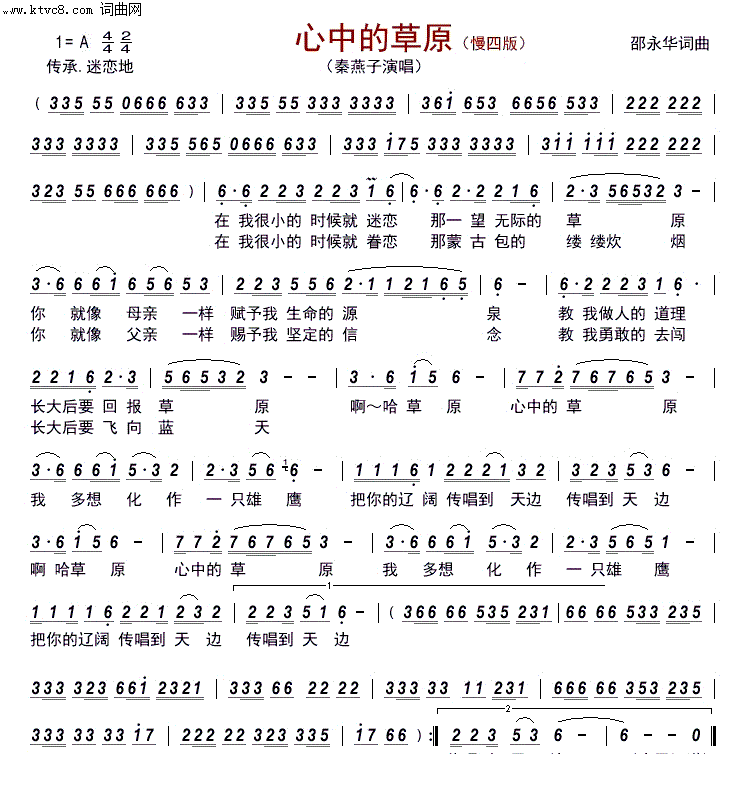 www.ktvc8.com 词曲网
1=A 4/4 2/4 心中的草原（慢四版） 邵永华词曲
传承.迷恋地 （秦燕子演唱）
( 335 55 0666 633 | 335 555 333 3333 | 361 653 6656 533 | 222 222 |
333 3333 | 335 565 0666 633 | 333 175 333 3333 | 311 111 222 222 |
323 55 666 666 ) | 6·6 223 223 16 | 6·6 2·2 216 | 2·3 56532 3 – |
在 我很小的 时候就 迷恋 那一 望 无际的 草 原
在 我很小的 时候就 眷恋 那蒙 古 包的 缕 缕炊 烟
3·6 661 656 53 | 223 556 2·11 2165 | 6 – | 6·2 2231 6· |
你 就像 母亲 一样 赋予我 生命的 源 泉 教 我做人的 道理
你 就像 父亲 一样 赐予我 坚定的 信 念 教 我勇敢的 去闯
2216 2·3 | 56532 3 – – | 3·6 156 – | 772 76765 3 – |
长大后要 回报 草 原 啊～哈 草 原 心中的 草 原
长大后要 飞向 蓝 天
3·6 661 5·3 2 | 2·3 56 1 6· – | 1116 2221 323 | 235 6 – |
我 多想 化 作 一 只雄 鹰 把你的辽 阔 传唱到 天边 传唱到 天 边
3·6 156 – | 772 76765 3 – | 3·6 661 5·3 2 | 2·3 565 – |
啊 哈草 原 心中的 草 原 我 多想 化 作 一 只雄 鹰
1
11116 221 232 | 223 51 6 – | ( 366 66 535 231 | 66 66 533 533 |
把你的辽阔 传唱到 天 边 传唱到 天 边
333 323 661 2321 | 333 66 22 66 | 333 333 11 231 | 666 66 353 235 |
2
333 33 33 17 | 222 22 323 335 | 222 22 353 235 | 17 66 ) :| 223 53 6 – | 6 – – 0 ‖